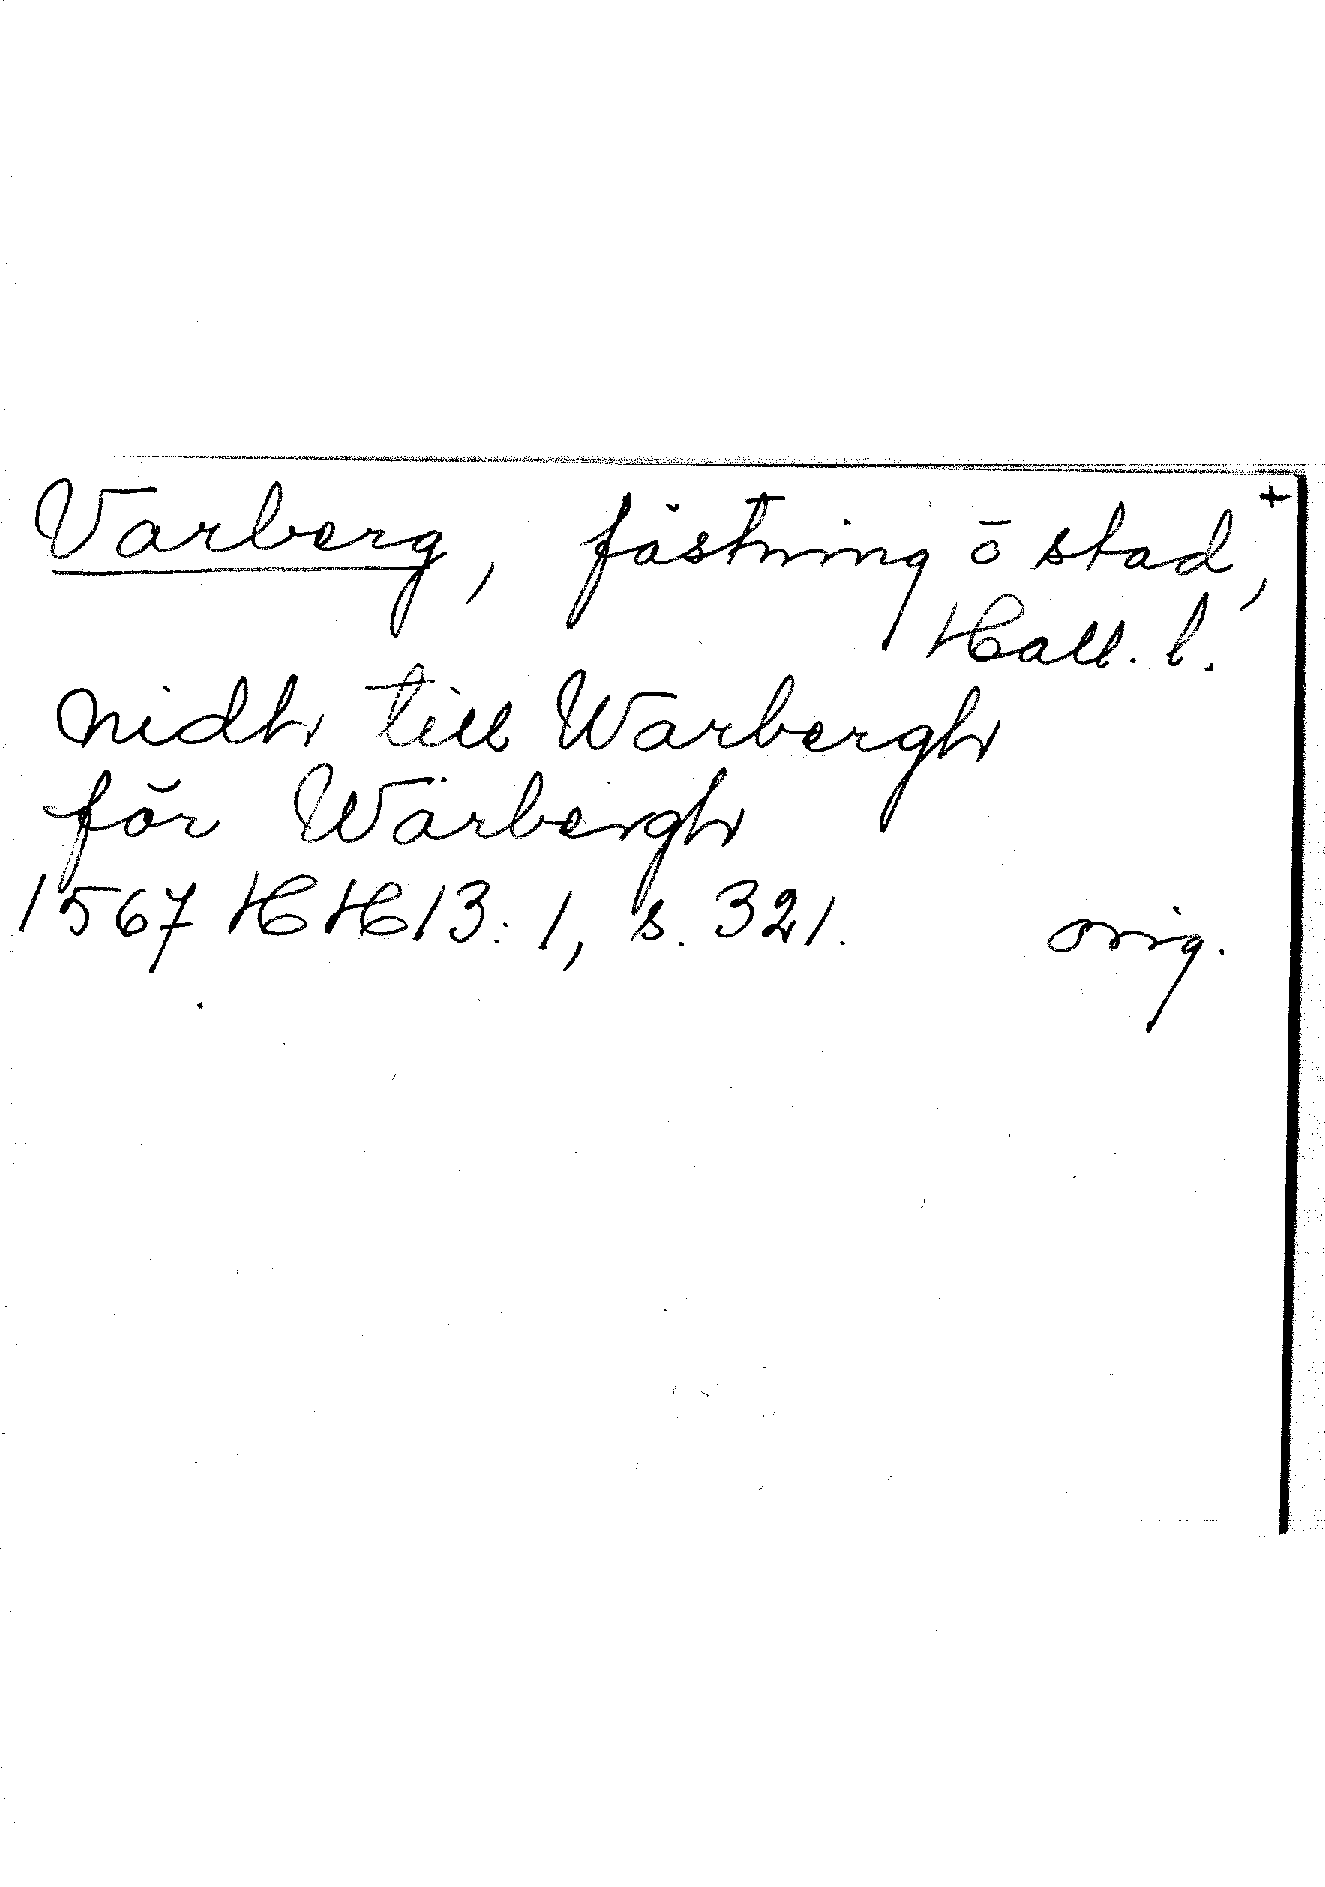 Varberg, fästning ō stad, +
Hall. l.
nidh till Warbergh
för Warbergh
1567 HH 13:1, s. 321. orig.